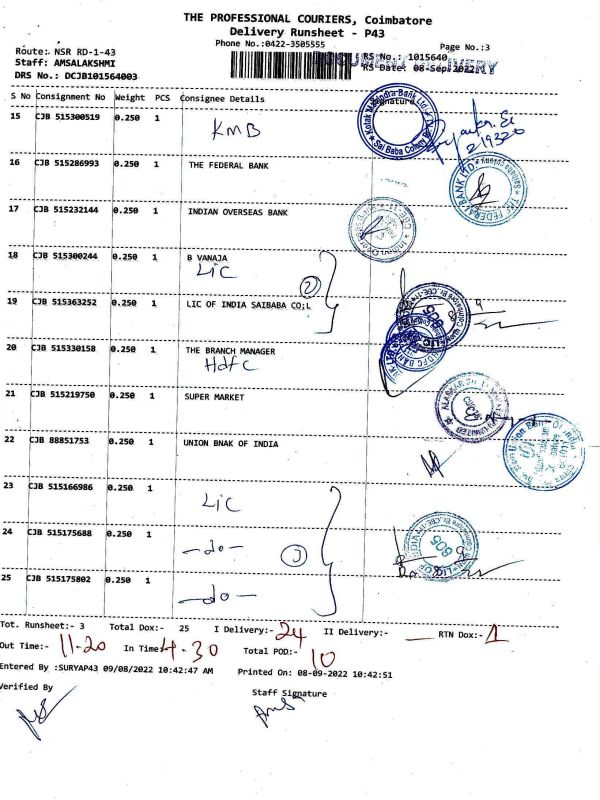 THE PROFESSIONAL COURIERS, Coimbatore
Delivery Runsheet - P43
Phone No.:0422-3505555
Page No.:3
Route: NSR RD-1-43
RS No.: 1015640
Staff: AMSALAKSHMI
RS Date: 08-Sep-2022
DRS No.: DCJB101564003
S No Consignment No Weight PCS Consignee Details Signature
15 CJB 515300519 0.250 1 KMB
16 CJB 515286993 0.250 1 THE FEDERAL BANK
17 CJB 515232144 0.250 1 INDIAN OVERSEAS BANK
18 CJB 515300244 0.250 1 B VANAJA
LIC
2
19 CJB 515363252 0.250 1 LIC OF INDIA SAIBABA CO;L
20 CJB 515330158 0.250 1 THE BRANCH MANAGER
Hdfc
21 CJB 515219750 0.250 1 SUPER MARKET
22 CJB 88851753 0.250 1 UNION BNAK OF INDIA
23 CJB 515166986 0.250 1 LIC
24 CJB 515175688 0.250 1 -do-
3
25 CJB 515175802 0.250 1 -do-
Tot. Runsheet:- 3 Total Dox:- 25 I Delivery:- 24 II Delivery:- — RTN Dox:- 1
Out Time:- 11-20 In Time:- 4-30 Total POD:- 10
Entered By :SURYAP43 09/08/2022 10:42:47 AM Printed On: 08-09-2022 10:42:51
Verified By
Staff Signature